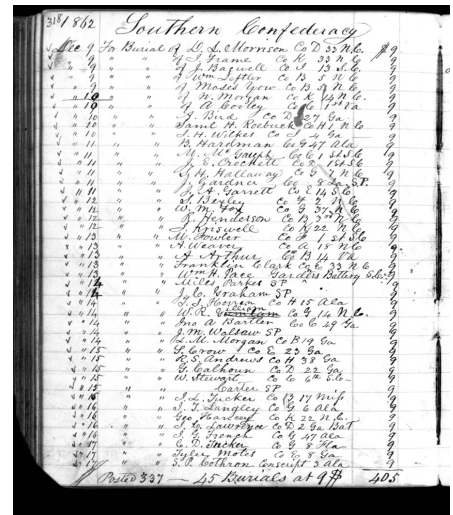 318 1862 Southern Confederacy
Dec 9 For Burial of D. L. Morrison Co D 33 N.C. $9
" 9 " " of J. Frame Co K 33 N C 9
" 9 " " of J. Bagwell Co 13 S.C. 9
" 9 " " of Wm Leftler Co B 5 N C 9
" 9 " " of Moses Yow Co B N C. 9
" 10 " " of N. Morgan Co K 14 N C. 9
" 10 " " of A Corley Co Va 9
" 10 " " Bird Co D 27 Ga 9
" 10 " " Saml H. Roebuck Co H N C 9
" 10 " " S. H. Wilkes Co 4 Ga 9
" 11 " " B. Hardman Co G 47 Ala 9
" 11 " " M. Mc Co C 1st S C 9
" 11 " " E. Crockett Co 1st S C 9
" 11 " " H. Hallaway Co G N C 9
" 11 " " J. Gardner Co 8 S.P. 9
" 11 " " A. Garrett Co E 14 S C 9
" 12 " " S. Bexley Co 2 N C 9
" 12 " " W. M. Fox Co G 37 N C 9
" 12 " " R. Henderson Co B 3rd N C 9
" 12 " " J. Kriswell Co K 22 N C 9
" 13 " " Fowler Co F 1 St S C 9
" 13 " " A. Weaver Co A 18 N C 9.
" 13 " " A Arthur Co B 14 Va 9
" 13 " " Franklin Clark Co E 33 N C. 9
" 13 " " Wm H. Pace Garders Battery S.C. 9
" 14 " " Miles Parker SP " 9
" 14 " " J. C. Graham SP 9
" 14 " " T. J. Co H 15 Ala 9
" 14 " " W. R. Co G 14 N C. 9
" 14 " " Jno A Bartler Co C 49 Ga 9
" 14 " " J. M. Walsaw SP 9
" 14 " " L. M. Morgan Co B 19 Ga 9
" 15 " " G. Crow Co E 23 Ga 9
" 15 " " R. S. Andrews Co H 38 Ga 9
" 15 " " G. Calhoun Co D 22 Ga 9
" 15 " " W. Stewart Co C 6th S.C. 9
" 15 " " Carter SP 9
" 16 " " L. Tucker Co B 17 Miss 9
" 16 " " J. T. Langley Co G 6 Ala 9
" 16 " " Geo Harvey Co K 22 N.C. 9
" 16 " " J. C. Lawrence Co D 2 Ga Bat 9
" 16 " " J. G. French Co G 47 Ala 9
" 17 " " C. D. Tucker Co G 8 Fla 9
" 17 " " Tyler Motes Co E 8 Ga 9
" 17 " " S. P. Cothron Conscript 3 Ala 9
Posted 337 — 45 Burials at 9$ 405